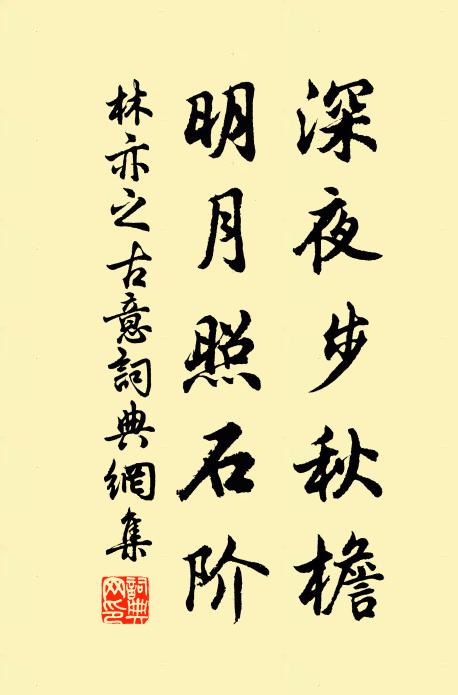 深夜步秋檐
明月照石阶
林亦之古意詞典網集
詞典网印